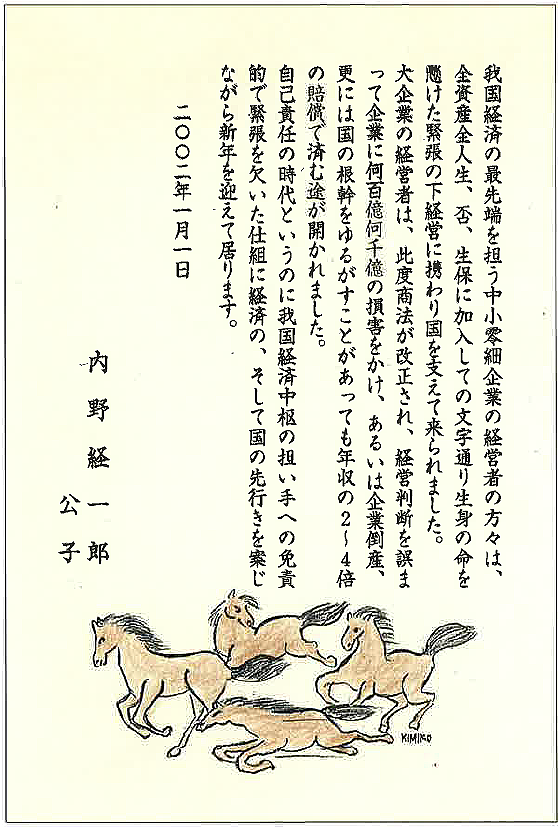 我国経済の最先端を担う中小零細企業の経営者の方々は、
全資産全人生、否、生保に加入しての文字通り生身の命を
懸けた緊張の下経営に携わり国を支えて来られました。
大企業の経営者は、此度商法が改正され、経営判断を誤ま
って企業に何百億何千億の損害をかけ、あるいは企業倒産、
更には国の根幹をゆるがすことがあっても年収の2〜4倍
の賠償で済む途が開かれました。
自己責任の時代というのに我国経済中枢の担い手への免責
的で緊張を欠いた仕組に経済の、そして国の先行きを案じ
ながら新年を迎えて居ります。
二〇〇二年一月一日
内野経一郎
公子
KIMIKO